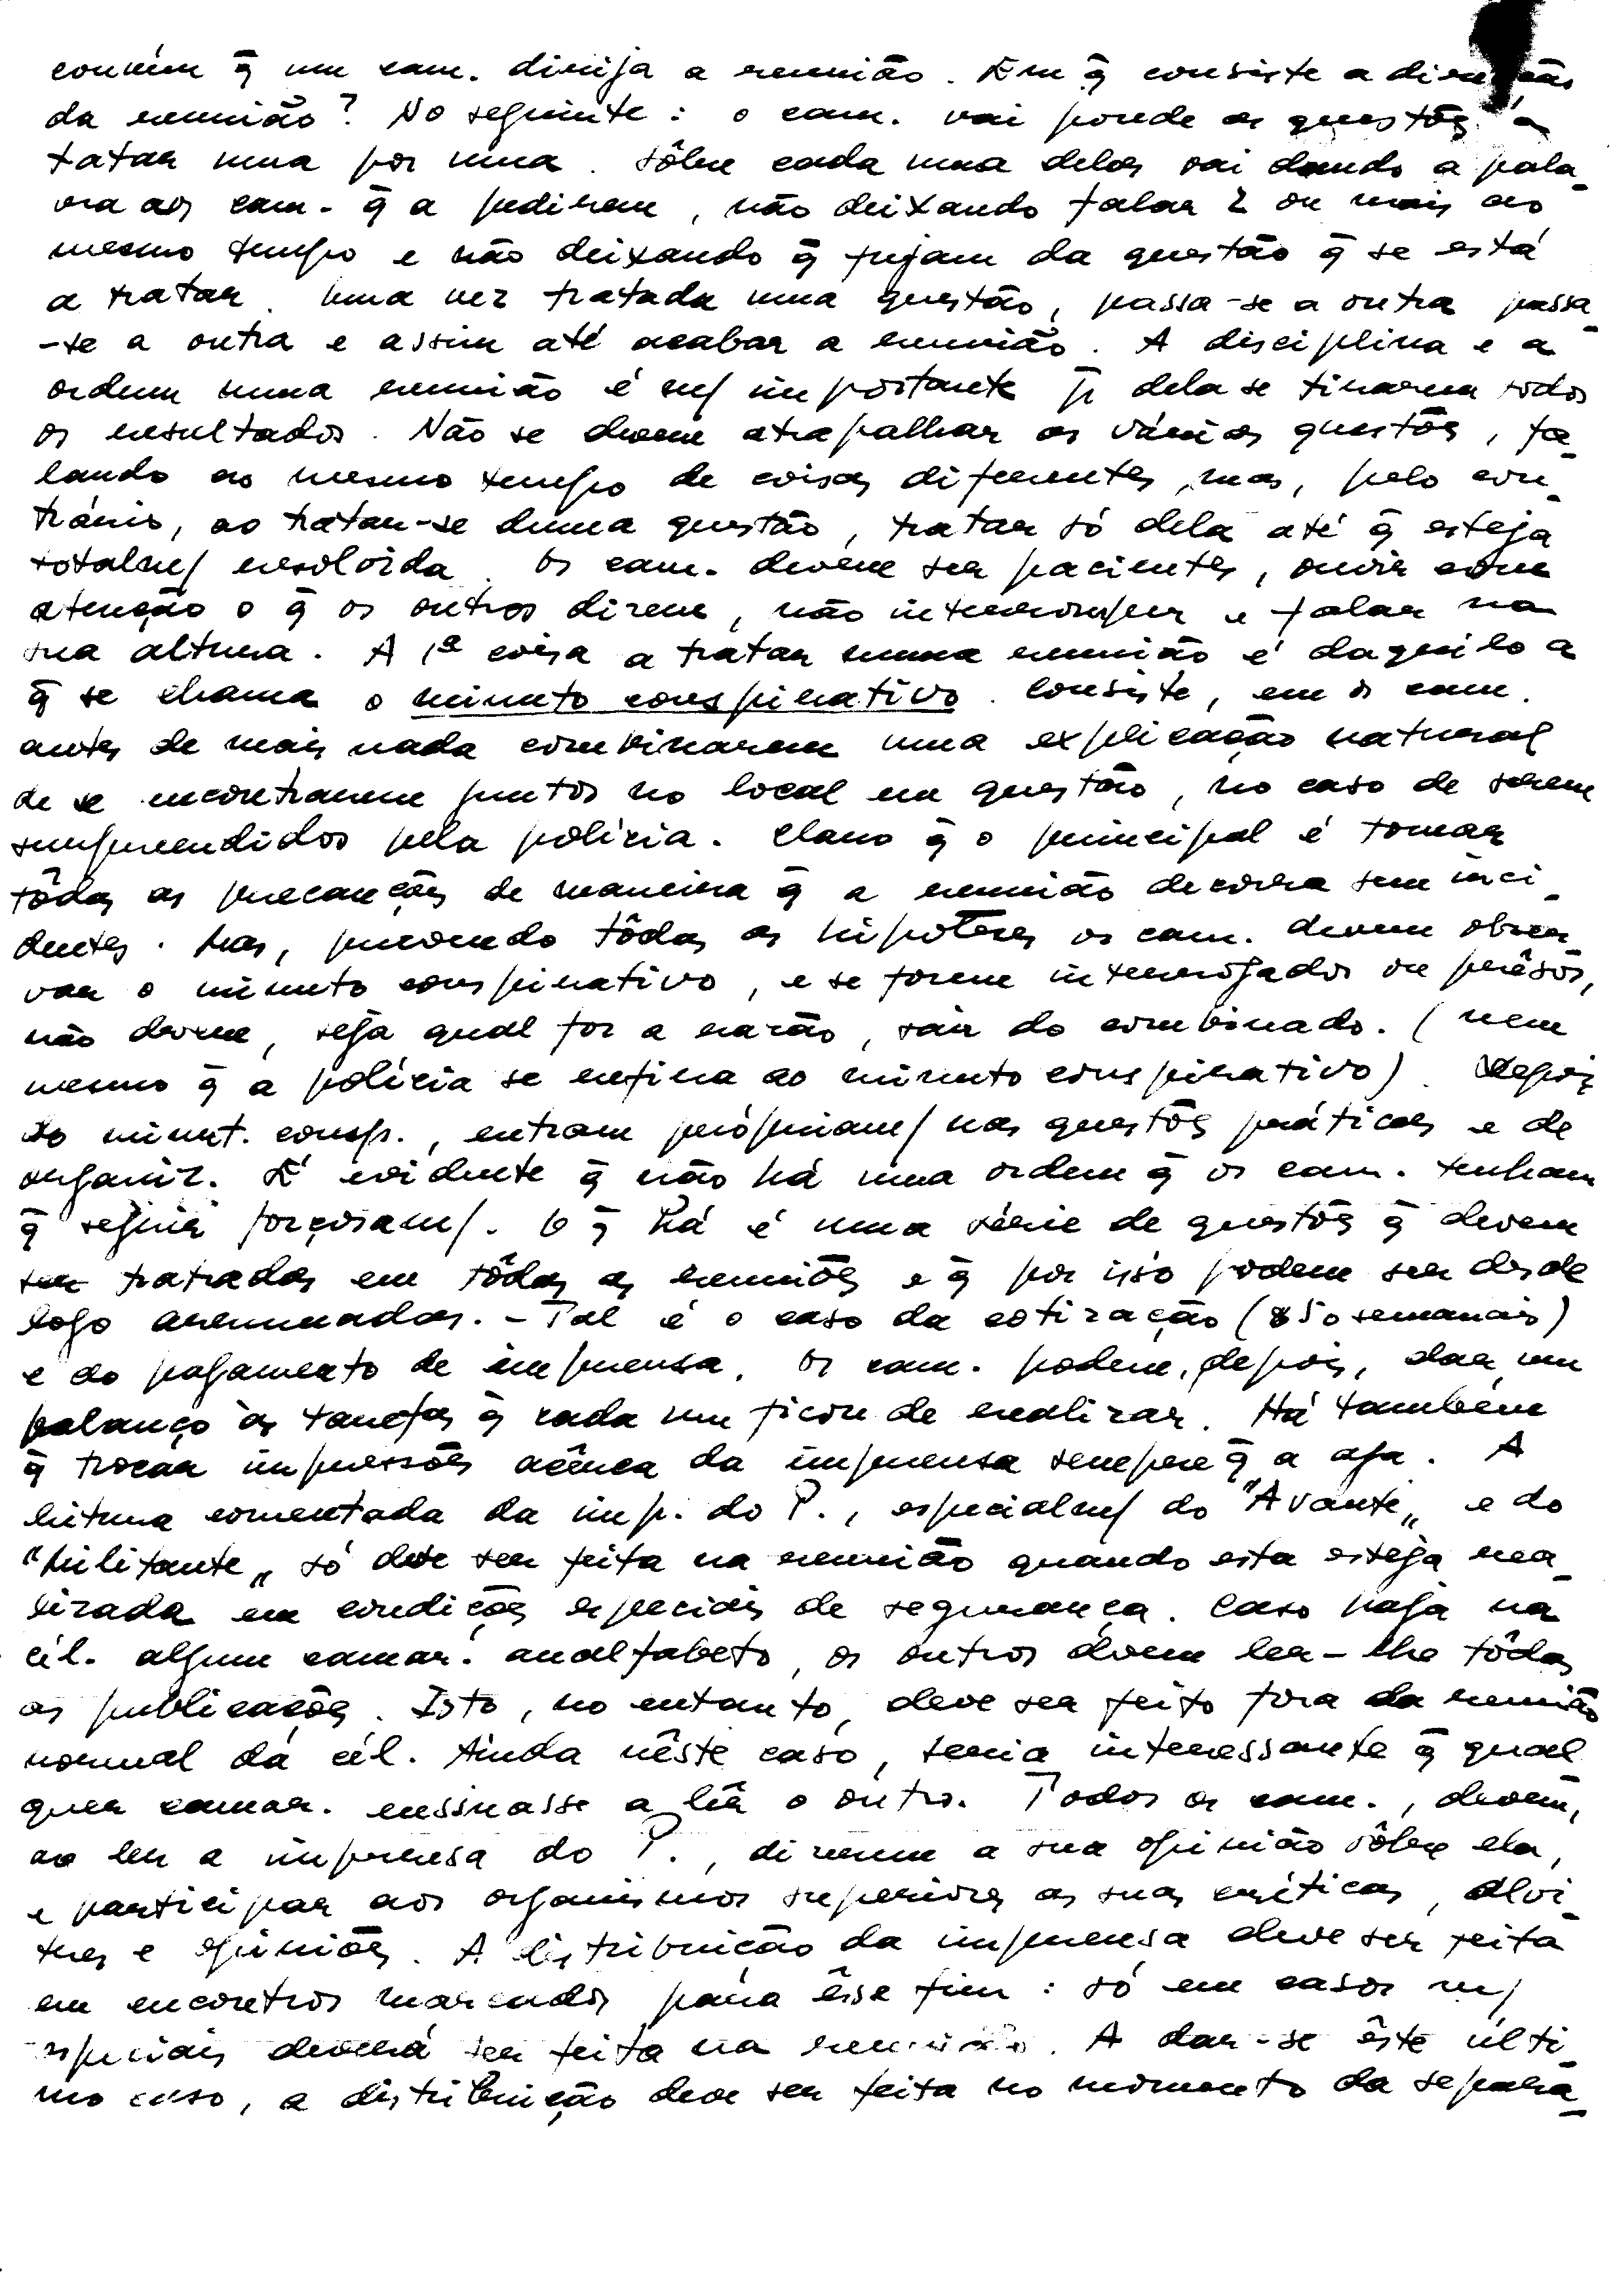 convém q̄ um cam. dirija a reunião. Em q̄ consiste a
da reunião? No seguinte: o cam. vai pondo as questõs a
tatar uma por uma. Sôbre cada uma delas vai dando a pala-
vra aos cam. q̄ a pedirem, não deixando falar 2 ou mais ao
mesmo tempo e não deixando q̄ fujam da questão q̄ se está
a tratar. Uma vez tratada uma questão, passa-se a outra passa-
-se a outra e assim até acabar a reunião. A disciplina e a
ordem numa reunião é m/ importante p̄ dela se tirarem todos
os resultados. Não se devem atrapalhar as várias questõs, fa-
lando ao mesmo tempo de coisas diferentes, mas, pelo con-
trário, ao tratar-se duma questão, tratar só dela até q̄ esteja
totalm/ resolvida. Os cam. devem ser pacientes, ouvir com
atenção o q̄ os outros dizem, não interromper e falar na
sua altura. A 1ª coisa a tratar numa reunião é daquilo a
q̄ se chama o minuto conspirativo. Consiste, em os cam.
antes de mais nada combinarem uma explicação natural
de se encontrarem juntos no local em questão, no caso de serem
surpreendidos pela polícia. Claro q̄ o principal é tomar
tôdas as precauçõs de maneira q̄ a reunião decorra sem inci-
dentes. Mas, prevendo tôdas as hipóteses os cam. devem obser-
var o minuto conspirativo, e se forem interrogados ou prêsos,
não devem, seja qual for a razão, sair do combinado. (nem
mesmo q̄ a polícia se refira ao minuto conspirativo). Depois
do minut. consp., entram pròpriam/ nas questõs práticas e de
organiz. É evidente q̄ não há uma ordem q̄ os cam. tenham
q̄ seguir forçosam/. O q̄ há é uma série de questõs q̄ devem
ser tratadas em tôdas as reuniõs e q̄ por isso podem ser desde
logo arrumadas. - Tal é o caso da cotização ($50 semanais)
e do pagamento de imprensa. Os cam. podem, depois, dar um
balanço às tarefas q̄ cada um ficou de realizar. Há também
q̄ trocar impressões acêrca da imprensa sempre q̄ a aja. A
leitura comentada da imp. do P., especialm/ do "Avante„ e do
"Militante„ só deve ser feita na reunião quando esta esteja rea-
lizada em condiçõs especiais de segurança. Caso haja na
cél. algum camar. analfabeto, os outros devem ler-lhe tôdas
as publicaçõs. Isto, no entanto, deve ser feito fora da reunião
normal da cél. Ainda nêste caso, seria interessante q̄ qual
quer camar. ensinasse a lêr o outro. Todos os cam., devem,
ao ler a imprensa do P., dizerem a sua opinião sôbre ela,
e participar aos organismos superiores as suas críticas, alvi-
tres e opiniõs. A distribuição da imprensa deve ser feita
em encontros marcados para êsse fim: só em casos m/
especiais deverá ser feita na reunião. A dar-se êste últi-
mo caso, a distribuição deve ser feita no momento da separa-